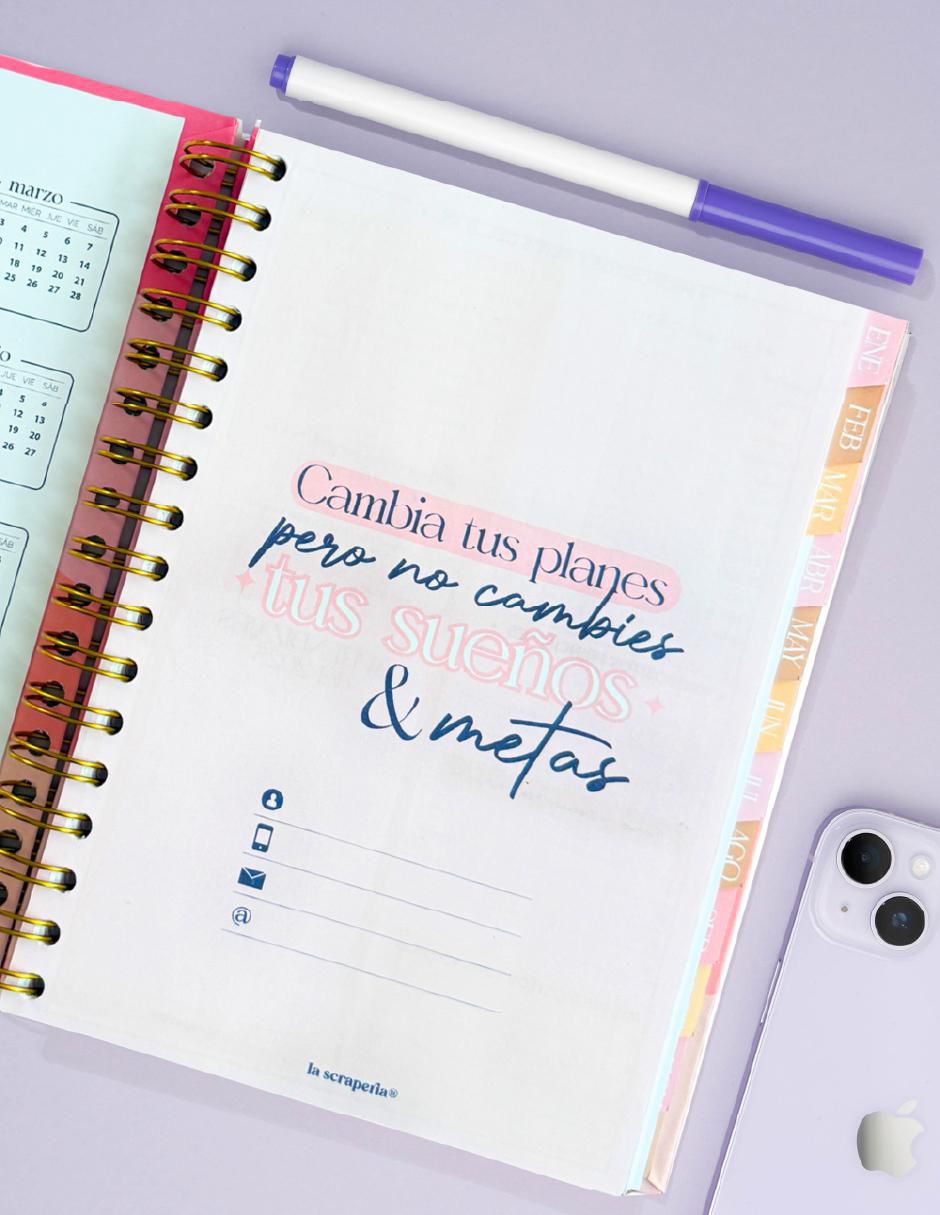 marzo
MAR MIÉR JUE VIE SÁB
3 4 5 6 7
10 11 12 13 14
18 19 20 21
25 26 27 28
JUE VIE SÁB
4 5 6
12 13
19 20
26 27
SÁB
Cambia tus planes
pero no cambies
tus sueños
& metas
@
la scrapería®
ENE
FEB
MAR
ABR
MAY
JUN
JUL
AGO